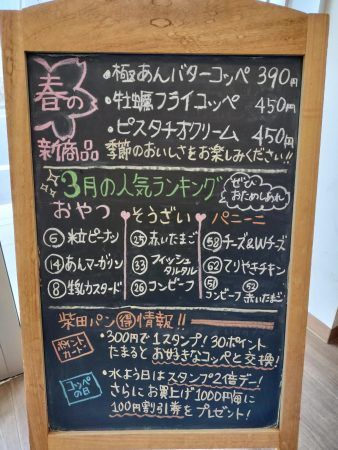 春の
新商品
・極あんバターコッペ 390円
・牡蠣フライコッペ 450円
・ピスタチオクリーム 450円
季節のおいしさをお楽しみください!!
3月の人気ランキング
ぜひ
おためしあれ
おやつ そうざい パニーニ
⑥粒ピーナツ ㉕赤いたまご 58チーズ&Wチーズ
⑭あんマーガリン ㉝フィッシュタルタル 62てりやきチキン
⑧生乳カスタード ㉖コンビーフ 51コンビーフ 52赤いたまご
柴田パン 得 情報!!
ポイントカード
・300円で1スタンプ!30ポイント
たまるとお好きなコッペと交換!
コッペの日
・水よう日はスタンプ2倍デー!
さらにお買上げ1000円毎に
100円割引券をプレゼント!